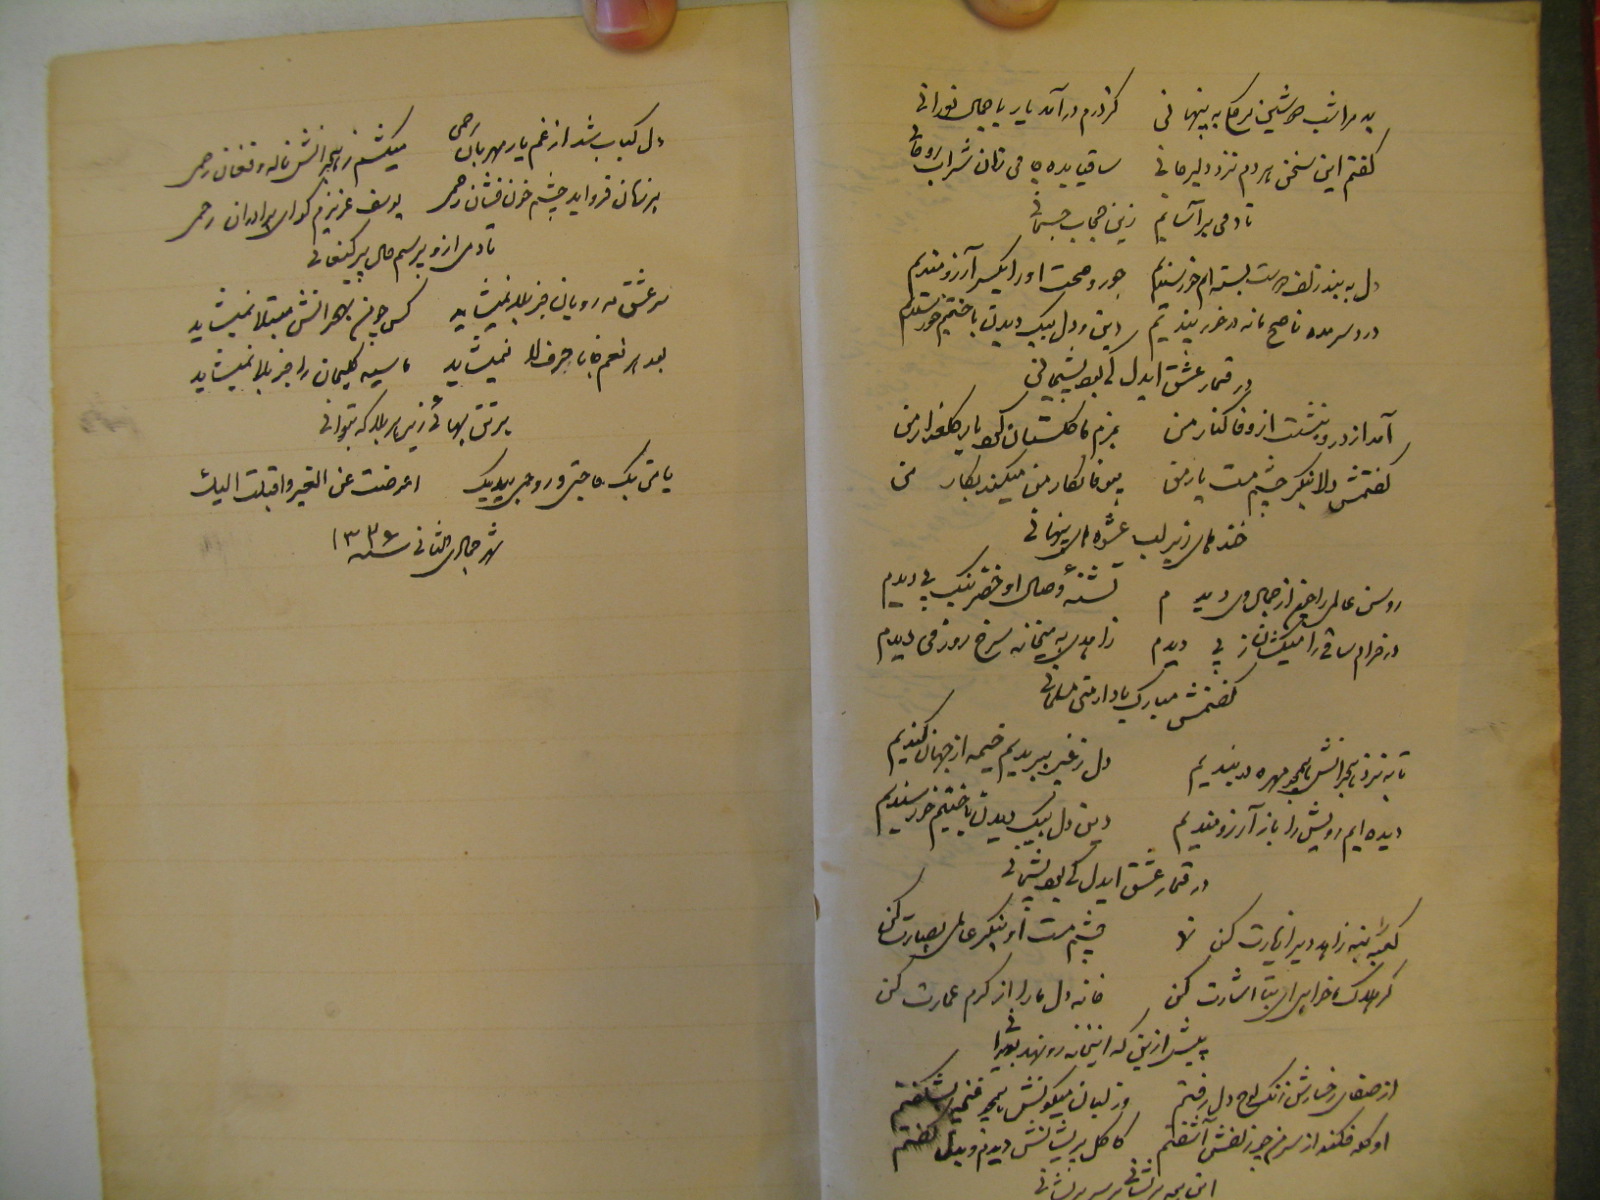 بد مرا شب دوشین بزمکی به پنهانی کز درم درآمد یار با جمال نورانی
گفتم این سخن هر دم نزد دلبر جانی ساقیا بده جامی زان شراب روحانی
تا دمی برآسایم زین حجاب جسمانی
دل به بند زلف دوست بسته‌ام خرسندیم جور و محنت او را یکسر آرزومندیم
درد سر مده ناصح ما نه در خور پندیم دین و دل بیک دیدن باختیم خورسندیم
در قمار عشق ایدل کی بود پشیمانی
آمد از در و بنشست از وفا کنار من بزم ما گلستان کرد یار گلعذار من
گفتمش دلا بنگر چشم مست یار من بیوفا نگار من میکند بکار من
خنده‌های زیر لب عشوه‌های پنهانی
روشن عالمی را من از جمال وی دیدم تشنهٔ وصال او خضر نیک پی دیدم
در خرام ساقی را میکشان ز پی دیدم زاهدی به میخانه سرخ روز می دیدم
گفتمش مبارک باد ارمنی مسلمانی
تا به نرد هجرانش همچو مهره در بندیم دل ز غیر ببریدیم خیمه از جهان کندیم
دیده‌ایم رویش را باز آرزومندیم دین دل بیک دیدن باختیم خورسندیم
در قمار عشق ایدل کی بود پشیمانی
کعبه بنه زاهد دیر را زیارت کن چشم مست او بنگر عالمی بصارت کن
گر هلاک ما خواهی ای بت اشارت کن خانه دل ما را از کرم عمارت کن
پیش از ین که اینخانه رو نهد بویرانی
از صفای رخسارش زنگ لوح دل رفتم وز لبان میگونش همچو غنچه بشکفتم
او کله فکند از سر من چو زلفش آشفتم کاکل پریشانش دیدم و بدل گفتم
این همه پریشانی بر سر پریشانی
دل کباب شد از غم یار مهربان رحمی میکشم ز هجرانش ناله و فغان رحمی
هر زمان فرو آید چشم خون فشان رحمی یوسف عزیزم کو ای برادران رحمی
تا دمی ازو پرسم حال پیر کنعانی
سر عشق مه رویان جز بلا نمیشاید کس چو من بهجرانش مبتلا نمیشاید
بعد هر نعم جانا حرف لا نمیشاید ما سیه گلیمان را جز بلا نمیشاید
بر تن بهائی ریز هر بلا که بتوانی
یا من بک حاجتی و روحی بیدیک اعرضت عن الغیر و اقبلت الیک
شهر جمادی الثانی سنه ۱۳۳۶